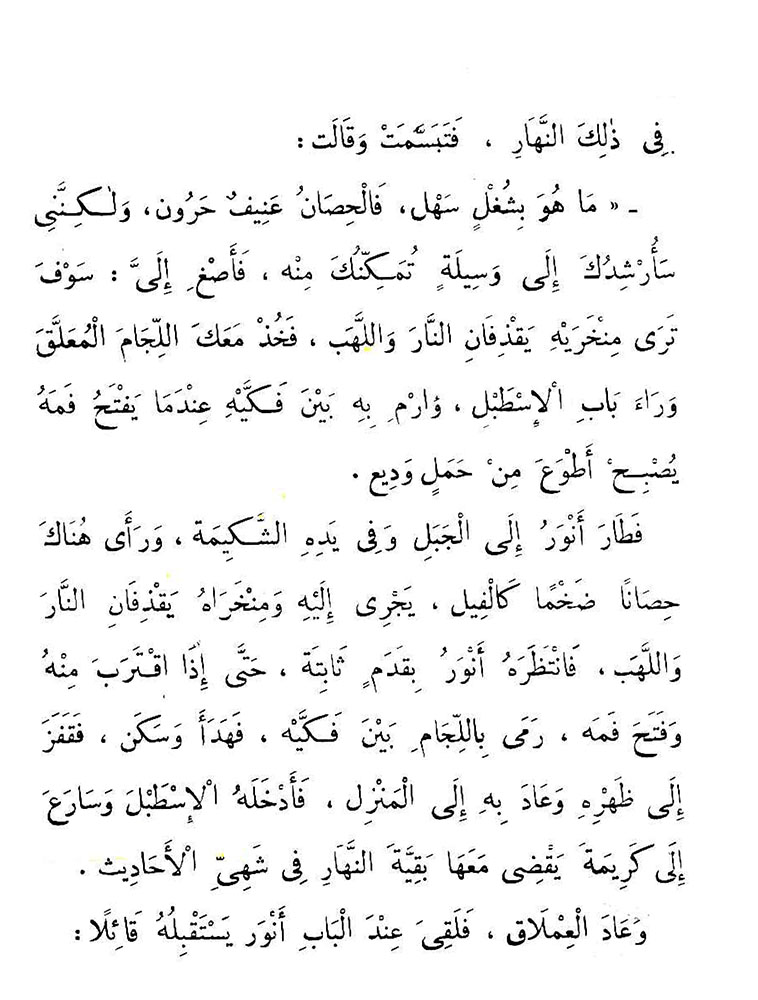 فِى ذٰلِكَ النَّهَارِ ، فَتَبَسَّمَتْ وَقَالَت :
ـ « مَا هُوَ بِشُغْلٍ سَهْل، فَالْحِصَانُ عَنِيفٌ حَرُون، وَلٰكِنَّنِى
سَأُرْشِدُكَ إِلَى وَسِيلَةٍ تُمَكِّنُكَ مِنْه ، فَأَصْغِ إِلَىَّ : سَوْفَ
تَرَى مِنْخَرَيْهِ يَقْذِفَانِ النَّارَ وَاللَّهَب ، فَخُذْ مَعَكَ اللِّجَامَ الْمُعَلَّقَ
وَرَاءَ بَابِ الْإِسْطَبْلِ ، وَارْمِ بِهِ بَيْنَ فَكَّيْهِ عِنْدَمَا يَفْتَحُ فَمَهُ
يُصْبِحْ أَطْوَعَ مِنْ حَمَلٍ وَدِيع .
فَطَارَ أَنْوَرُ إِلَى الْجَبَلِ وَفِى يَدِهِ الشَّكِيمَة ، وَرَأَى هُنَاكَ
حِصَانًا ضَخْمًا كَالْفِيل ، يَجْرِى إِلَيْهِ وَمِنْخَرَاهُ يَقْذِفَانِ النَّارَ
وَاللَّهَب ، فَانْتَظَرَهُ أَنْوَرُ بِقَدَمٍ ثَابِتَة ، حَتَّى إِذَا اقْتَرَبَ مِنْهُ
وَفَتَحَ فَمَه ، رَمَى بِاللِّجَامِ بَيْنَ فَكَّيْه ، فَهَدَأَ وَسَكَن ، فَقَفَزَ
إِلَى ظَهْرِهِ وَعَادَ بِهِ إِلَى الْمَنْزِل ، فَأَدْخَلَهُ الْإِسْطَبْلَ وَسَارَعَ
إِلَى كَرِيمَةَ يَقْضِى مَعَهَا بَقِيَّةَ النَّهَارِ فِى شَهِىِّ الْأَحَادِيث .
وَعَادَ الْعِمْلَاق ، فَلَقِىَ عِنْدَ الْبَابِ أَنْوَر يَسْتَقْبِلُهُ قَائِلًا :